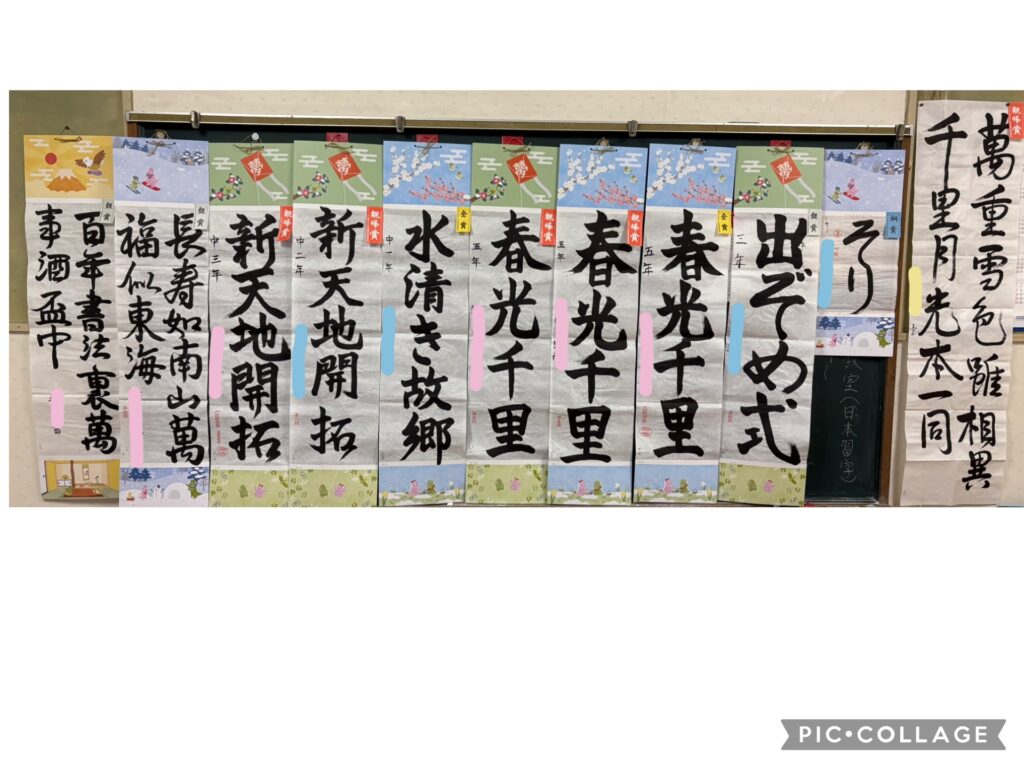 萬重雪色雖相異
千里月光本一同
観峰賞
そり
銅賞
出ぞめ式
三年
銀賞
春光千里
五年
金賞
春光千里
五年
観峰賞
春光千里
五年
観峰賞
水清き故郷
中一年
金賞
新天地開拓
中二年
観峰賞
新天地開拓
中三年
観峰賞
長寿如南山萬
福似東海
銀賞
百年書法裏萬
事酒盃中
銀賞
夢
夢
夢
(日本習字)
PIC•COLLAGE